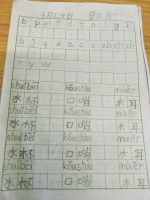 6月24日 星期一
b p m f d t n l g k h
j q x z c s zh ch sh
r y w
shuǐbēi kǒushào mùěr
水杯 口哨 木耳
shuǐbēi kǒushào mùěr
水杯 口哨 木耳
shuǐbēi kǒushào mùěr
水杯 口哨 木耳
shuǐbēi kǒushào mùěr
水杯 口哨 木耳